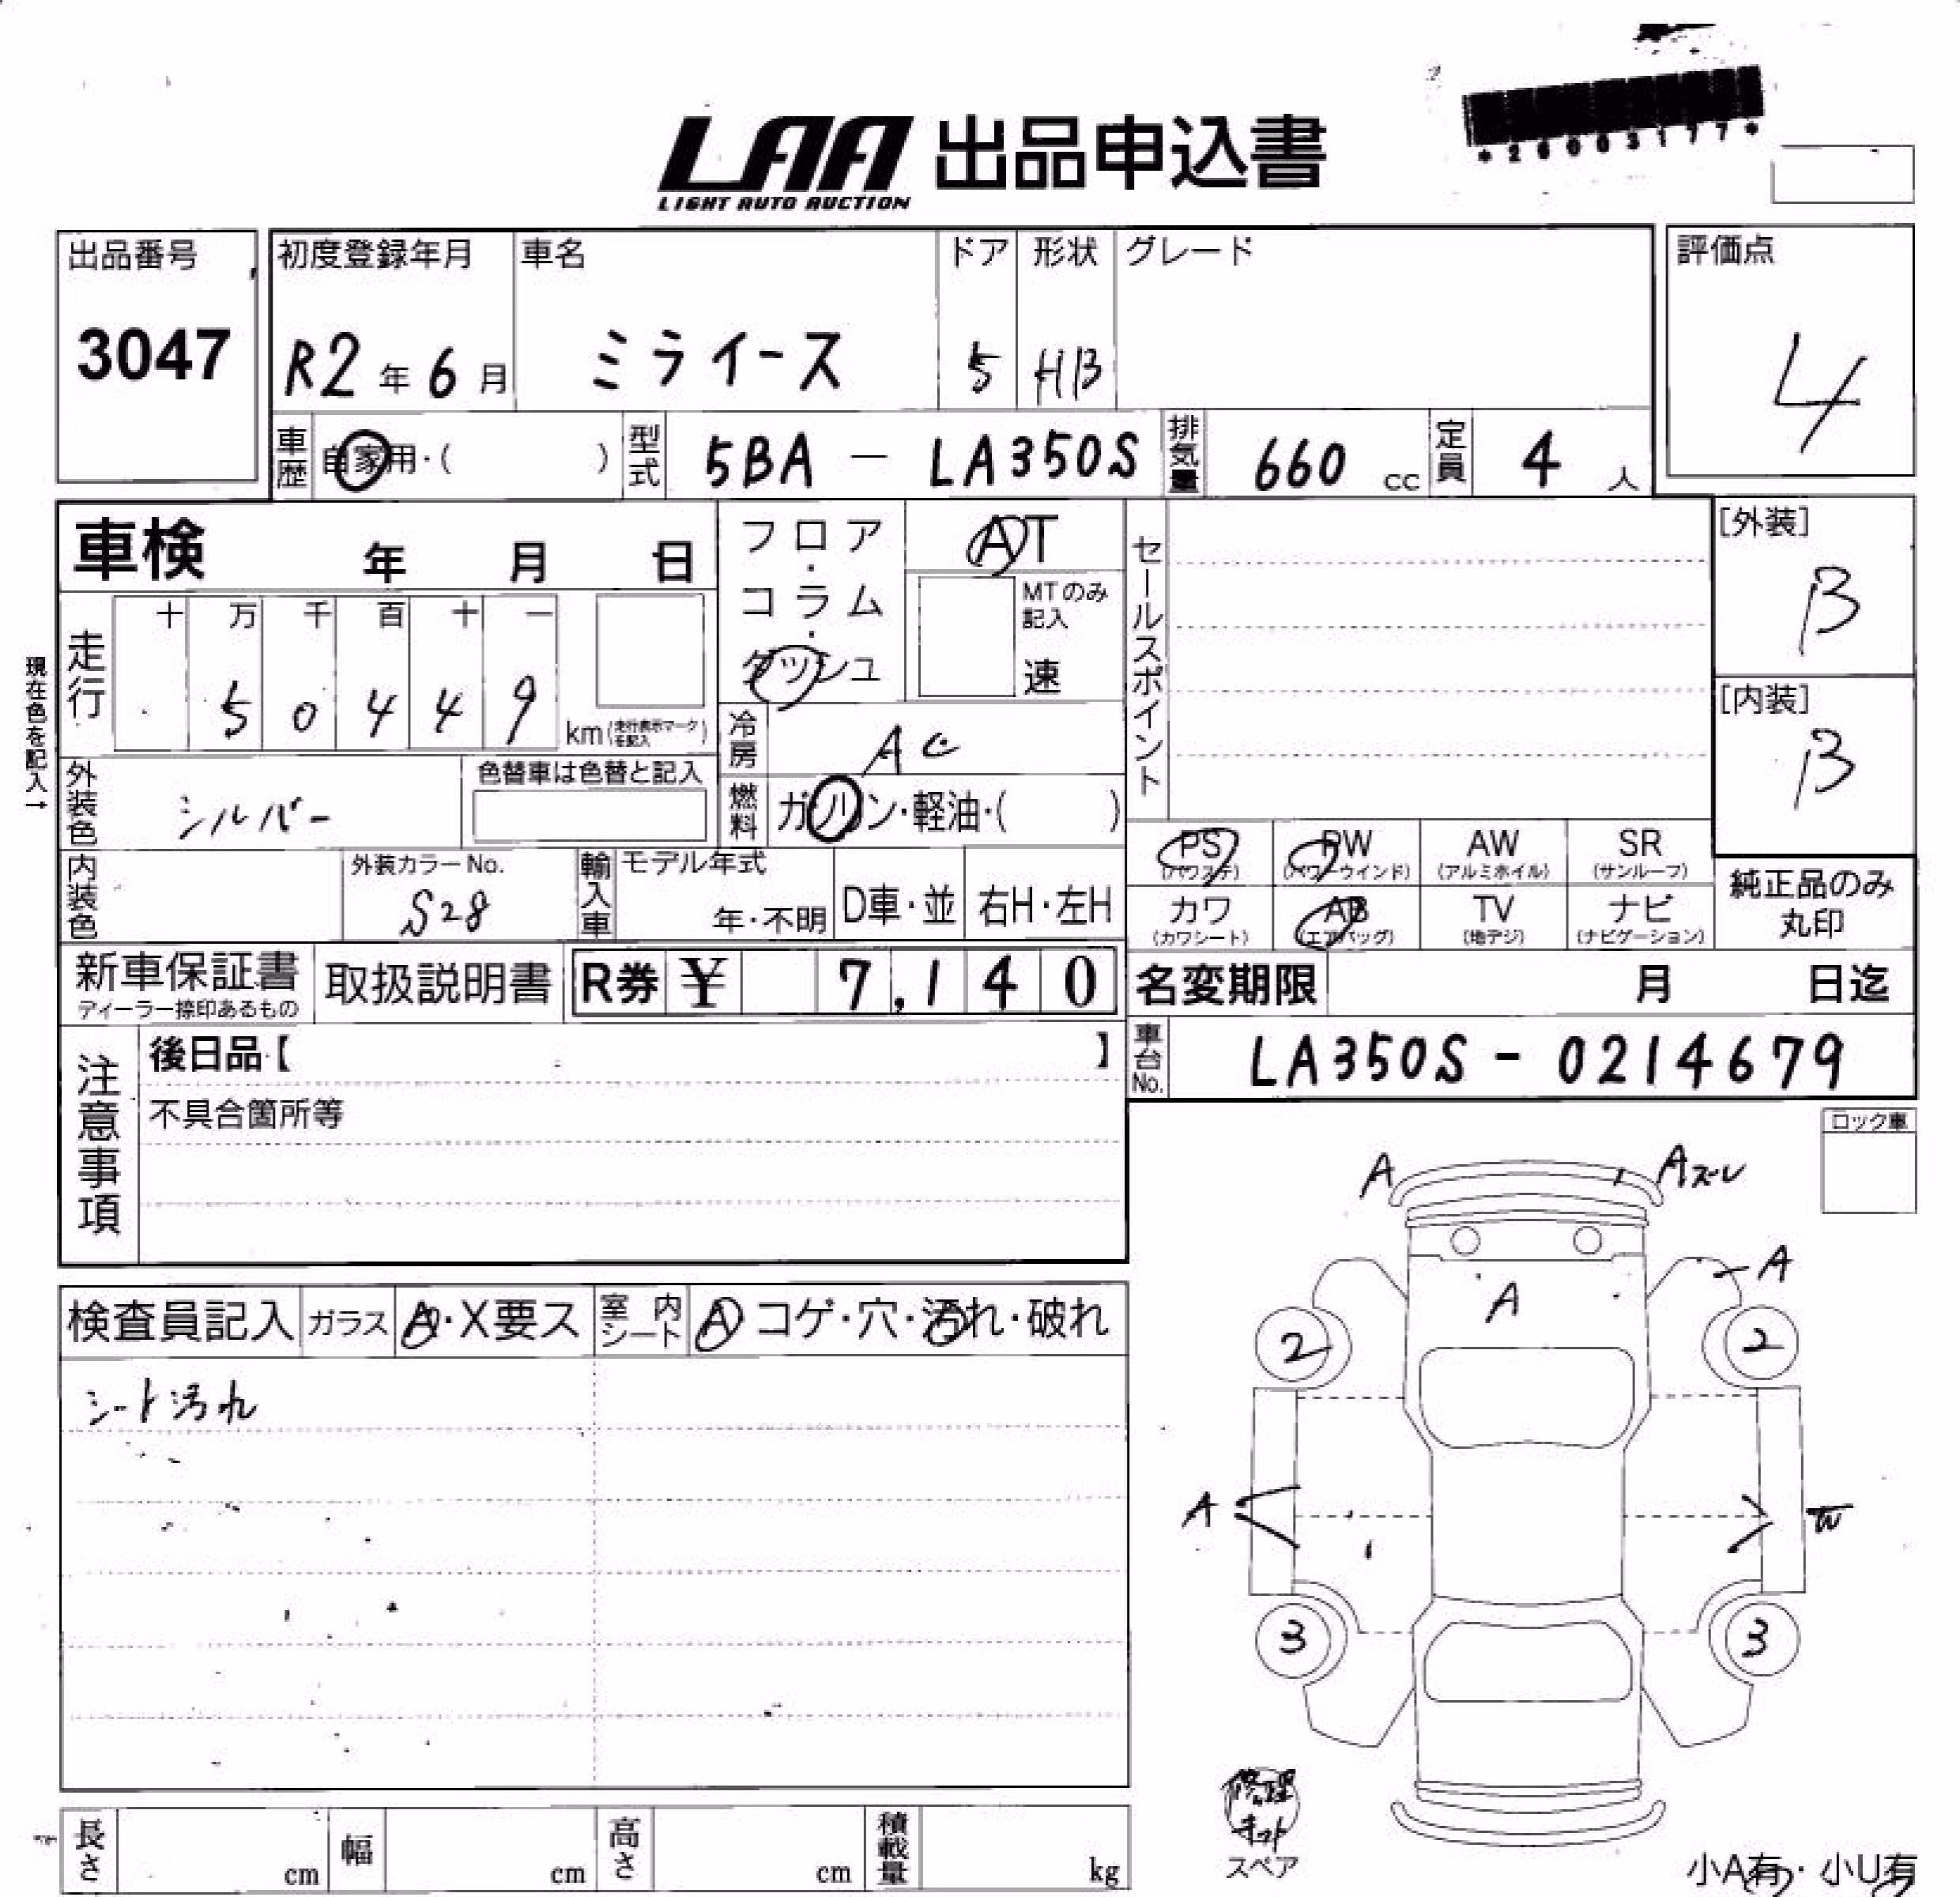 *26003177*
LAA 出品申込書
LIGHT AUTO AUCTION
出品番号 初度登録年月 車名 ドア 形状 グレード 評価点
3047 R2年6月 ミライース 5 HB 4
車歴 自家用・( ) 型式 5BA - LA350S 排気量 660 cc 定員 4 人
車検 年 月 日 フロア・コラム・ダッシュ AT セールスポイント [外装]
B
MTのみ記入 速
走行 十 万 千 百 十 一
5 0 4 4 9 km (走行表示マークを記入)
[内装]
B
現在色を記入→
冷房 AC
外装色 シルバー 色替車は色替と記入 燃料 ガソリン・軽油・( )
PS (パワステ) PW (パワーウインド) AW (アルミホイル) SR (サンルーフ)
内装色 外装カラーNo. S28 輸入車 モデル年式 年・不明 D車・並 右H・左H
カワ (カワシート) AB (エアバッグ) TV (地デジ) ナビ (ナビゲーション) 純正品のみ丸印
新車保証書 ディーラー捺印あるもの 取扱説明書 R券 ¥ 7,140 名変期限 月 日迄
注意事項 後日品【 】 車台No. LA350S - 0214679
不具合箇所等
ロック車
A Aズレ
A
A
検査員記入 ガラス A・X要ス 室内シート A コゲ・穴・汚れ・破れ
2 2
シート汚れ
A W
3 3
修理キット
スペア
長さ cm 幅 cm 高さ cm 積載量 kg
小A有・小U有